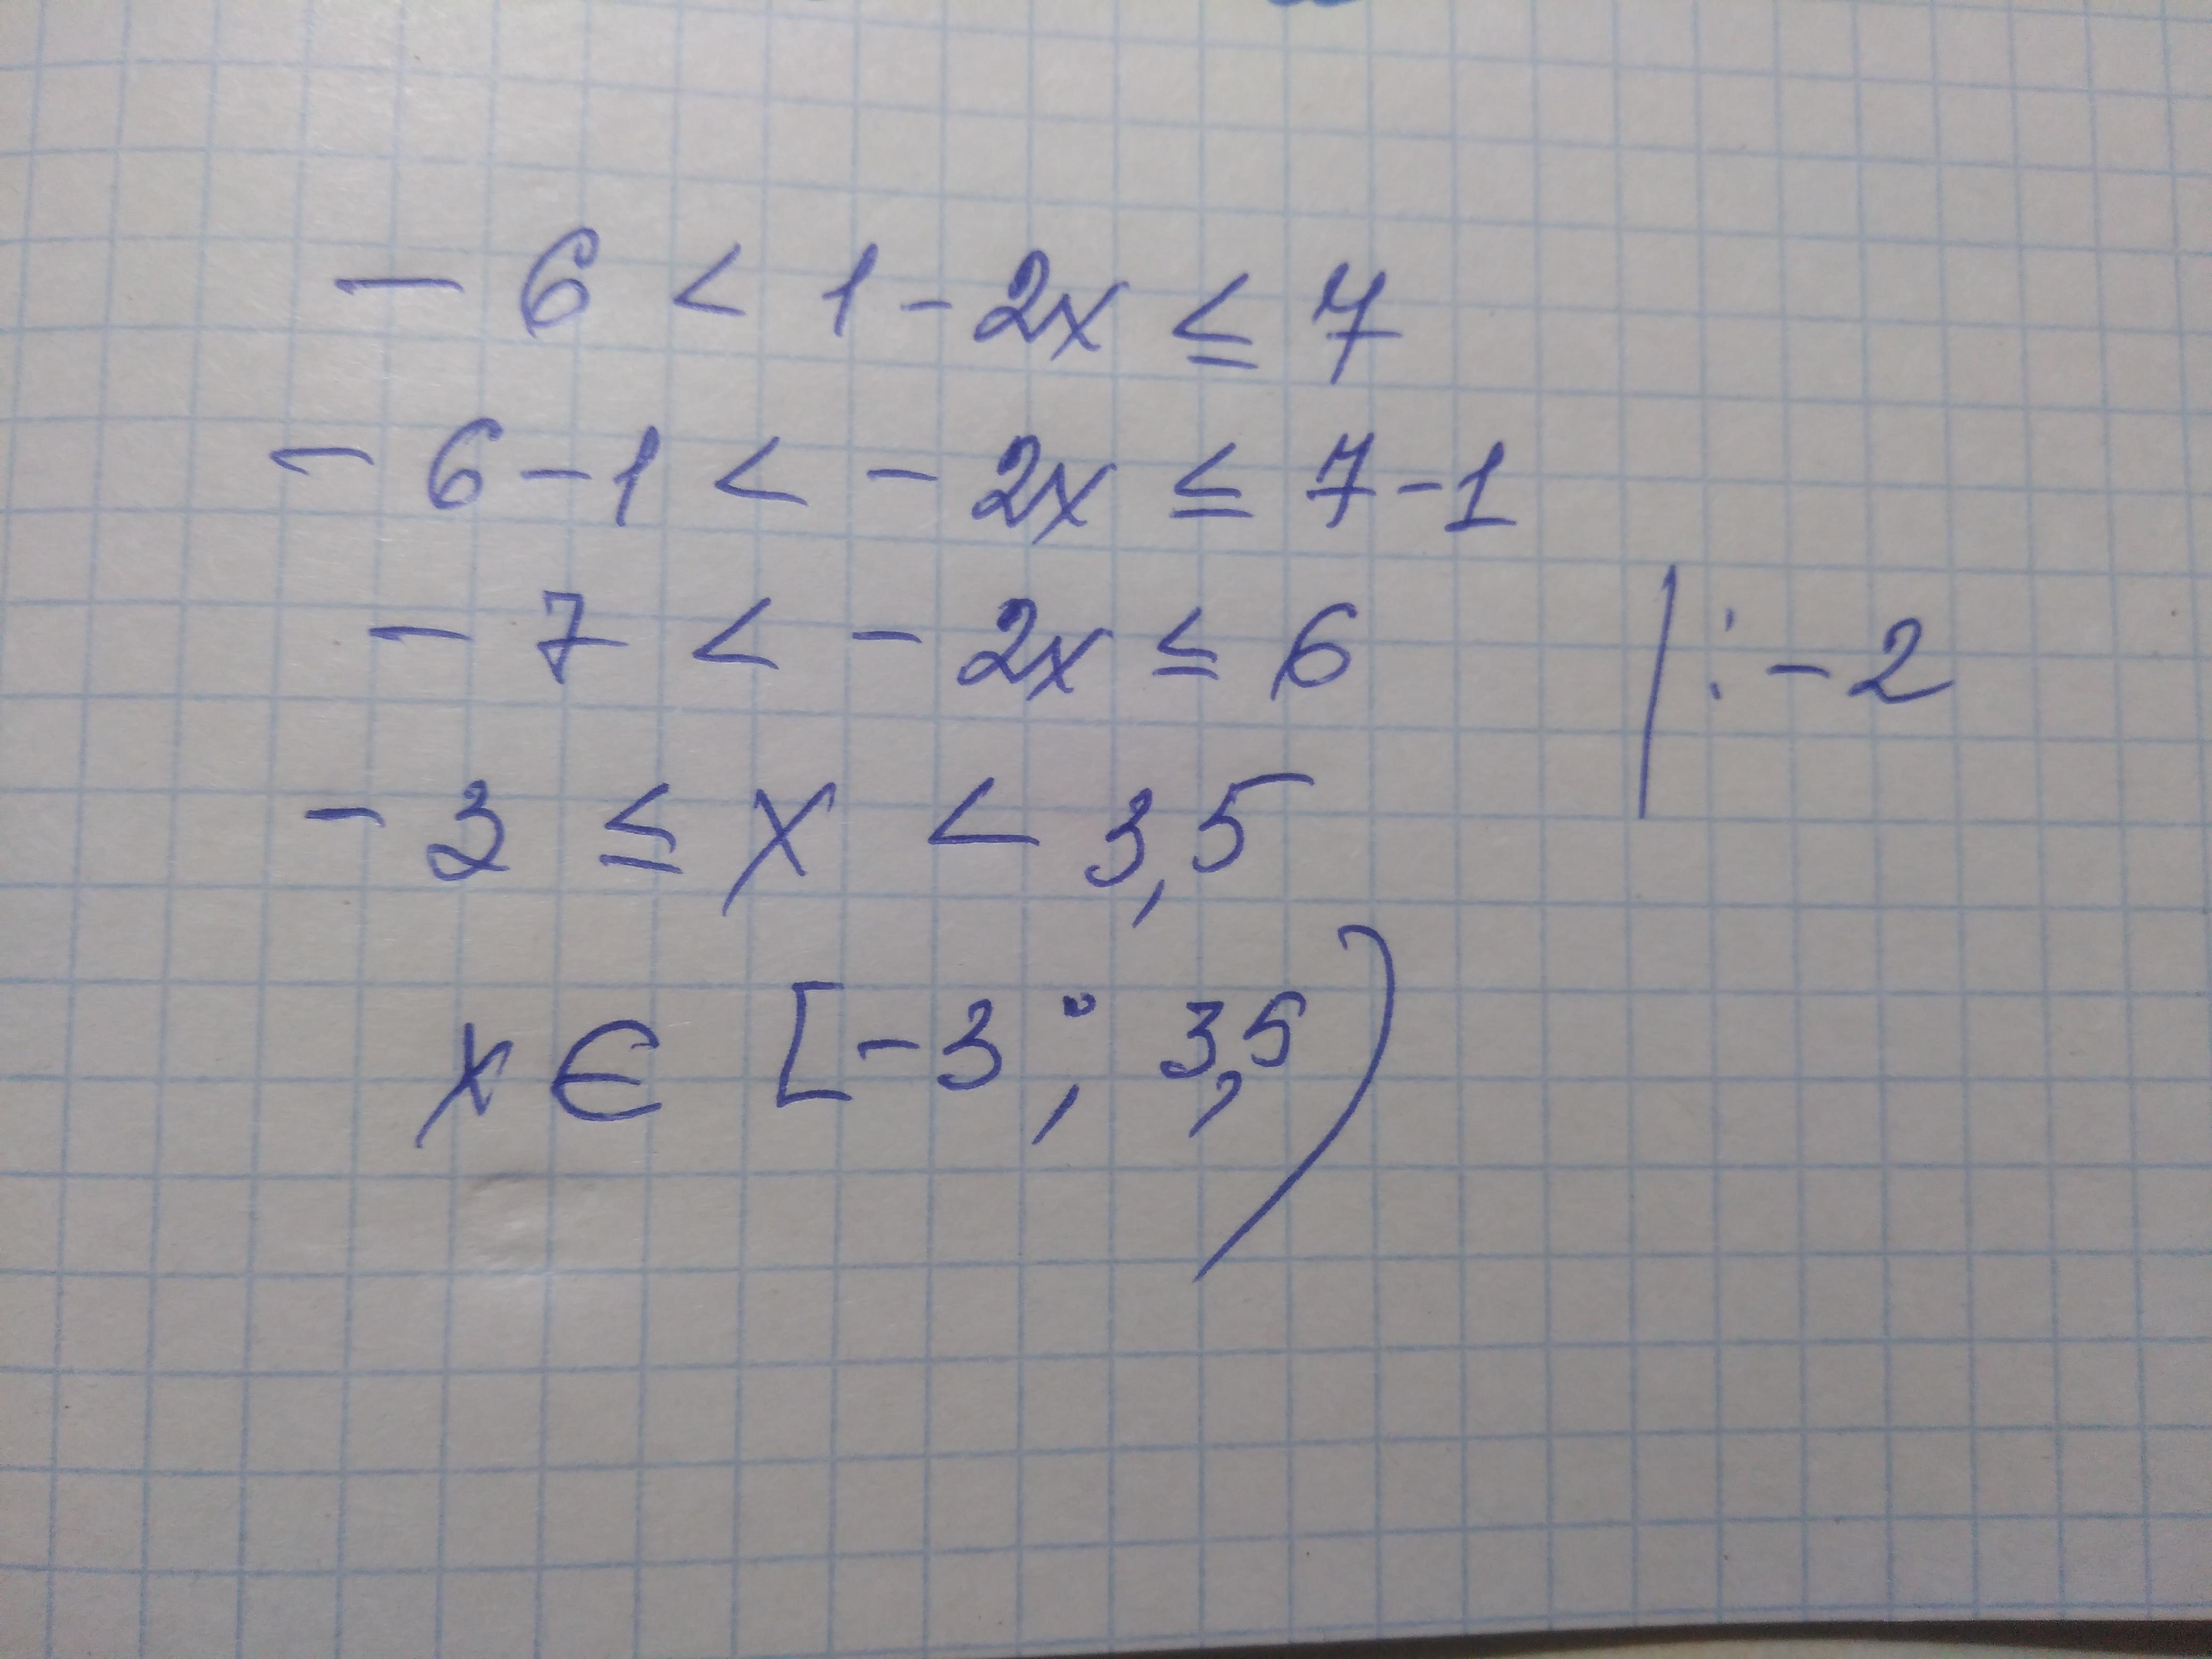 - 6 < 1 - 2x ≤ 7
- 6 - 1 < - 2x ≤ 7 - 1
- 7 < - 2x ≤ 6 | : - 2
- 3 ≤ x < 3,5
x ∈ [-3 ; 3,5)